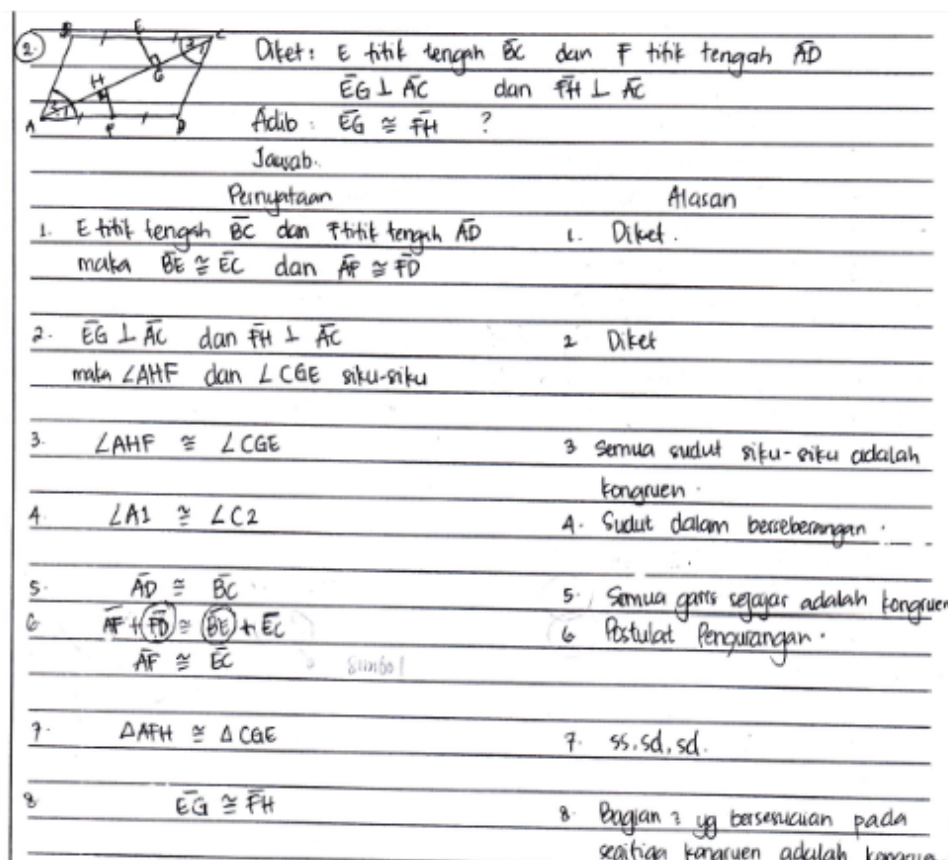 2. Diket : E titik tengah B̅C̅ dan F titik tengah A̅D̅
E̅G̅ ⊥ A̅C̅ dan F̅H̅ ⊥ A̅C̅
Adib : E̅G̅ ≅ F̅H̅ ?
B E C
2 1
G
H
2 1
A F D
Jawab.
Pernyataan Alasan
1. E titik tengah B̅C̅ dan F titik tengah A̅D̅ 1. Diket.
maka B̅E̅ ≅ E̅C̅ dan A̅F̅ ≅ F̅D̅
2. E̅G̅ ⊥ A̅C̅ dan F̅H̅ ⊥ A̅C̅ 2 Diket
maka ∠AHF dan ∠CGE siku-siku
3. ∠AHF ≅ ∠CGE 3 Semua sudut siku-siku adalah
kongruen.
4. ∠A1 ≅ ∠C2 4. Sudut dalam berseberangan.
5. A̅D̅ ≅ B̅C̅ 5. Semua garis sejajar adalah kongruen
6 A̅F̅ + F̅D̅ ≅ B̅E̅ + E̅C̅ 6 Postulat Pengurangan.
A̅F̅ ≅ E̅C̅ simbol
7. ΔAFH ≅ ΔCGE 7. ss, sd, sd.
8 E̅G̅ ≅ F̅H̅ 8. Bagian2 yg bersesuaian pada
segitiga kongruen adalah kongruen